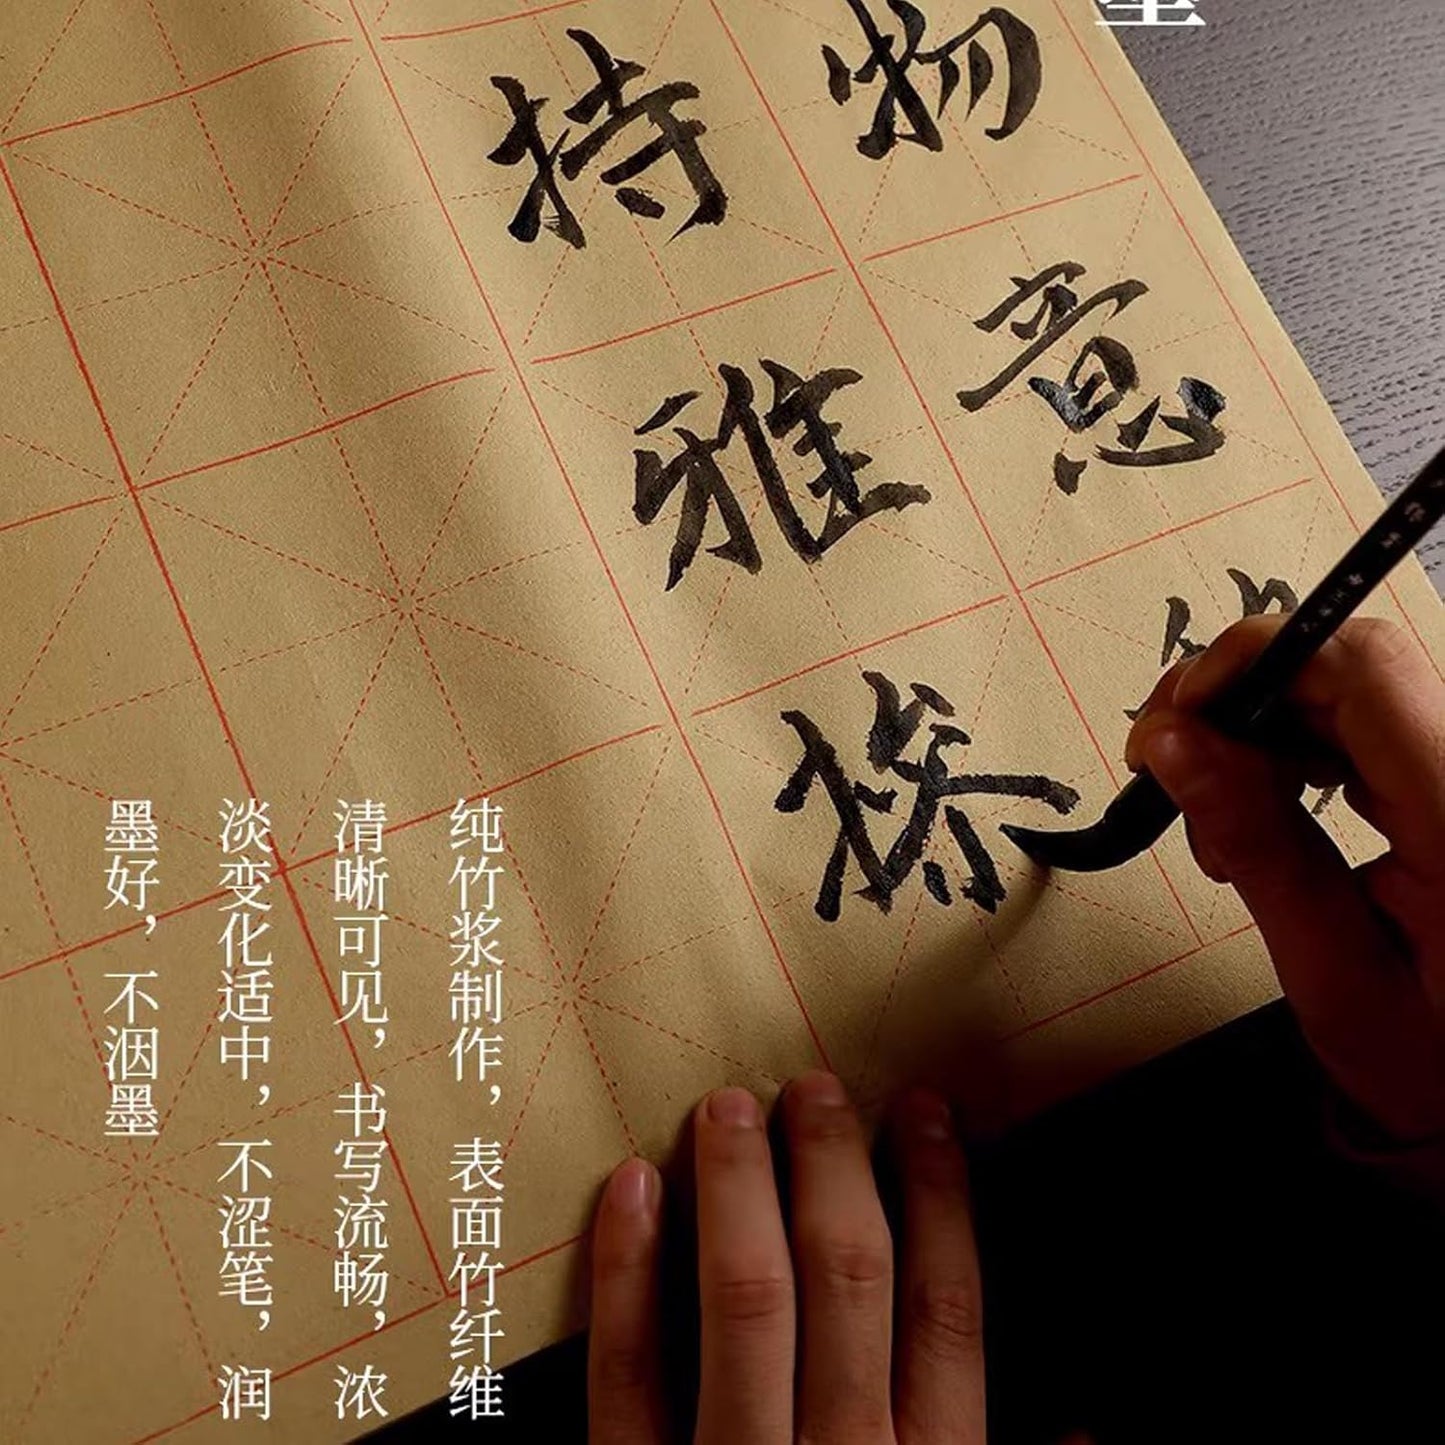 物意
持雅操
纯竹浆制作，表面竹纤维
清晰可见，书写流畅，浓
淡变化适中，不涩笔，润
墨好，不洇墨